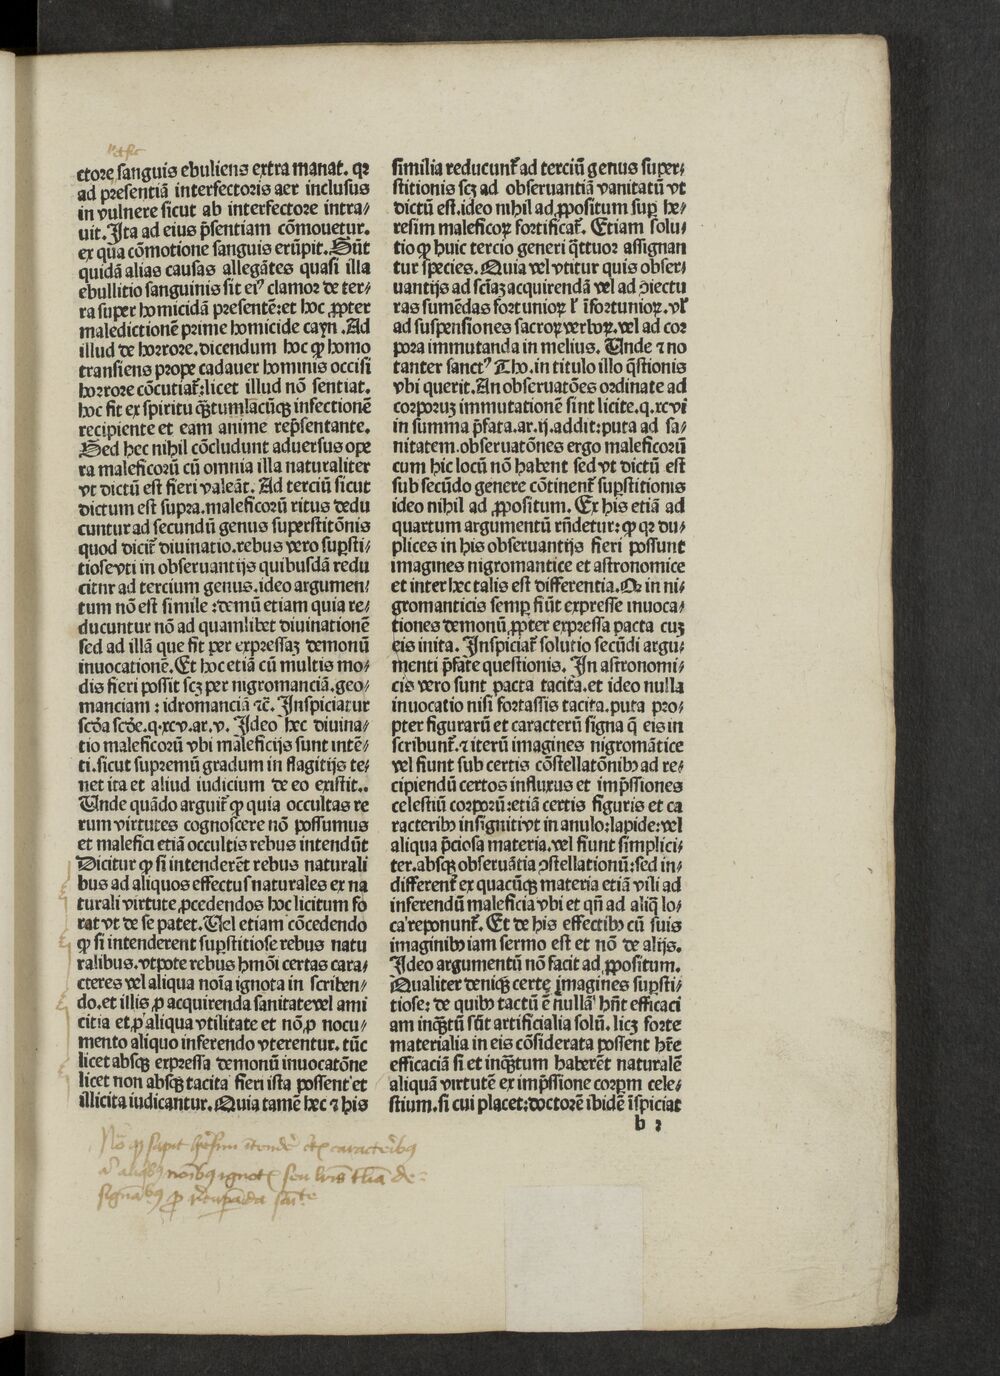 ctore sanguis ebuliens extra manat. qꝛ
ad presentiā interfectoris aer inclusus
in vulnere sicut ab interfectore intra⸗
uit. Ita ad eius p̄sentiam cōmouetur.
ex qua cōmotione sanguis erūpit. Sūt
quidā alias causas allegātes quasi illa
ebullitio sanguinis sit eiꝰ clamor de ter⸗
ra super homicidā presentē: et hoc ꝓpter
maledictionē prime homicide cayn. Ad
illud de horrore. dicendum hoc ꝙ homo
transiens prope cadauer hominis occisi
horrore cōcutiat̄: licet illud nō sentiat.
hoc fit ex spiritu qͣꝫtumlacūqꝫ infectionē
recipiente et eam anime rep̄sentante.
Sed hec nihil cōcludunt aduersus ope
ra maleficorū cū omnia illa naturaliter
vt dictū est fieri valeāt. Ad terciū sicut
dictum est supra. maleficorū ritus dedu
cuntur ad secundū genus superstitōnis
quod dicit̄ diuinatio. rebus vero suꝑsti⸗
tiose vti in obseruantijs quibusdā redu
citur ad tercium genus. ideo argumen⸗
tum nō est simile: demū etiam quia re⸗
ducuntur nō ad quamlibet diuinationē
sed ad illā que fit per expressaꝫ demonū
inuocationē. Et hoc etiā cū multis mo⸗
dis fieri possit scꝫ per nigromanciā. geo⸗
manciam: idromanciā ⁊c̄. Inspiciatur
scd̄a scd̄e. q. xcv. ar. v. Ideo hec diuina⸗
tio maleficorū vbi maleficijs sunt intē⸗
ti. sicut supremū gradum in flagitijs te⸗
net ita et aliud iudicium de eo existit..
Unde quādo arguit̄ ꝙ quia occultas re
rum virtutes cognoscere nō possumus
et malefici etiā occultis rebus intendūt
Dicitur ꝙ si intenderēt rebus naturali
bus ad aliquos effectus naturales ex na
turali virtute ꝓcedendos hoc licitum fo
rat vt de se patet. Uel etiam cōcedendo
ꝙ si intenderent suꝑstitiose rebus natu
ralibus. vtpote rebus hmōi certas cara⸗
cteres vel aliqua noīa ignota in scriben⸗
do. et illis ꝓ acquirenda sanitate vel ami
citia et ꝓ aliqua vtilitate et nō ꝓ nocu⸗
mento aliquo inferendo vterentur. tūc
licet absqꝫ expressa demonū inuocatōne
licet non absqꝫ tacita fieri ista possent et
illicita iudicantur. Quia tamē hec ⁊ his
similia reducunt̄ ad terciū genus super⸗
stitionis scꝫ ad obseruantiā vanitatū vt
dictū est. ideo nihil ad ꝓpositum suꝑ he⸗
resim maleficoꝝ fortificat̄. Etiam solu⸗
tio ꝙ huic tercio generi q̄ttuor assignan
tur species. Quia vel vtitur quis obser⸗
uantijs ad sciā acquirendā vel ad ꝯiectu
ras sumēdas fortunioꝝ l̄ īfortunioꝝ. vl̄
ad suspensiones sacroꝝ verboꝝ. vel ad cor
pora immutanda in melius. Unde ⁊ no
tanter sanctꝰ Tho. in titulo illo q̄stionis
vbi querit. An obseruatōes ordinate ad
corporuꝫ immutationē sint licite. q. xcvi
in summa p̄fata. ar. ij. addit: puta ad sa⸗
nitatem. obseruatōnes ergo maleficorū
cum hic locū nō habent sed vt dictū est
sub secūdo genere cōtinent̄ suꝑstitionis
ideo nihil ad ꝓpositum. Ex his etiā ad
quartum argumentū rn̄detur: ꝙ qꝛ du⸗
plices in his obseruantijs fieri possunt
imagines nigromantice et astronomice
et inter hec talis est differentia. Qꝛ in ni⸗
gromanticis semꝑ fiūt expresse inuoca⸗
tiones demonū ꝓpter expressa pacta cuꝫ
eis inita. Inspiciat̄ solutio secūdi argu⸗
menti p̄fate questionis. In astronomi⸗
cis vero sunt pacta tacita. et ideo nulla
inuocatio nisi fortassis tacita. puta pro⸗
pter figurarū et caracterū signa q̄ eis in
scribunt̄. ⁊ iterū imagines nigromātice
vel fiunt sub certis cōstellatōnibꝫ ad re⸗
cipiendū certos influxus et imp̄ssiones
celestiū corporū: etiā certis figuris et ca
racteribꝫ insigniti vt in anulo: lapide: vel
aliqua p̄ciosa materia. vel fiunt simplici⸗
ter. absqꝫ obseruātia ꝯstellationū: sed in⸗
different̄ ex quacūqꝫ materia etiā vili ad
inferendū maleficia vbi et qn̄ ad aliq̄ lo⸗
ca reponunt̄. Et de his effectibꝫ cū suis
imaginibꝫ iam sermo est et nō de alijs.
Ideo argumentū nō facit ad ꝓpositum.
Qualiter deniqꝫ certe imagines suꝑsti⸗
tiose: de quibꝫ tactū ē nullā hn̄t efficaci
am inqͣꝫtū sūt artificialia solū. licꝫ forte
materialia in eis cōsiderata possent hr̄e
efficaciā si et inqͣꝫtum haberēt naturalē
aliquā virtutē ex imp̄ssione corpm cele⸗
stium. si cui placet: doctorē ibidē īspiciat
b ꝛ
caracteribus